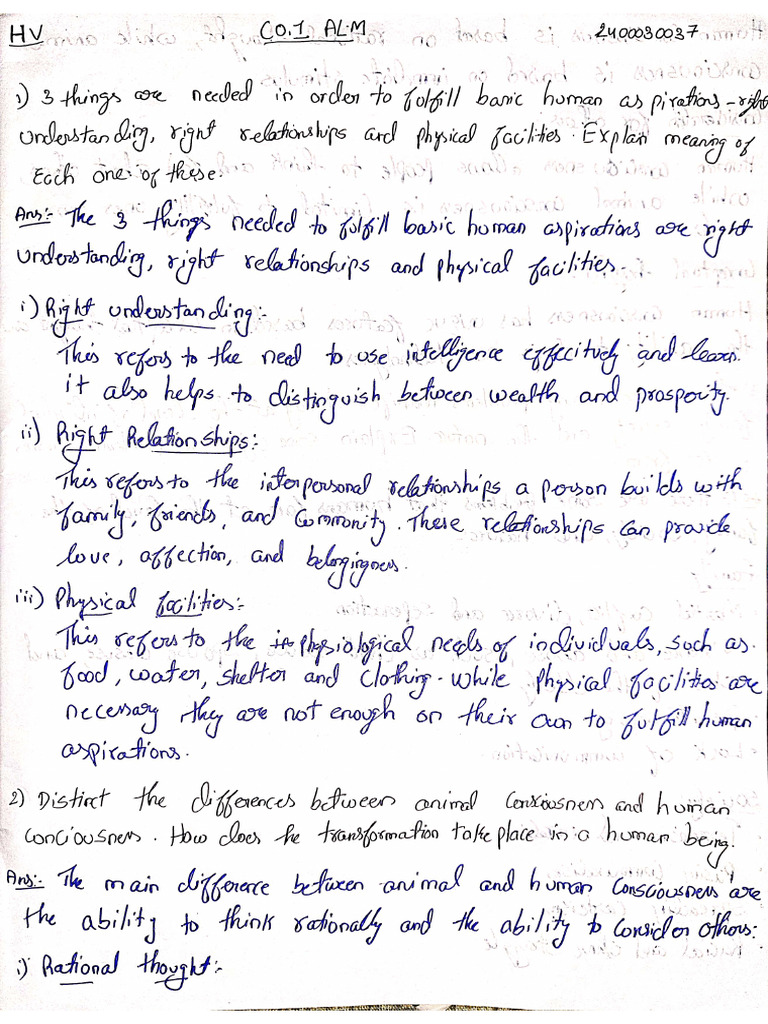 HV
CO.1 ALM
2400030037
1) 3 things are needed in order to fulfill basic human aspirations - right
understanding, right relationships and physical facilities. Explain meaning of
Each one of these.
Ans:- The 3 things needed to fulfill basic human aspirations are right
understanding, right relationships and physical facilities.
i) Right understanding:-
This refers to the need to use intelligence effecitvely and learn.
it also helps to distinguish between wealth and prosperity.
ii) Right Relationships:
This refers to the interpersonal relationships a person builds with
family, friends, and community. These relationships can provide
love, affection, and belongingness.
iii) Physical facilities:-
This refers to the physiological needs of individuals, such as
food, water, shelter and clothing. while physical facilities are
necessary they are not enough on their own to fulfill human
aspirations.
2) Distinct the differences between animal conxiousness and human
conciousness. How does he transformation take place in a human being.
Ans:- The main difference between animal and human consciousness are
the ability to think rationally and the ability to consider others:
i) Rational thought:-